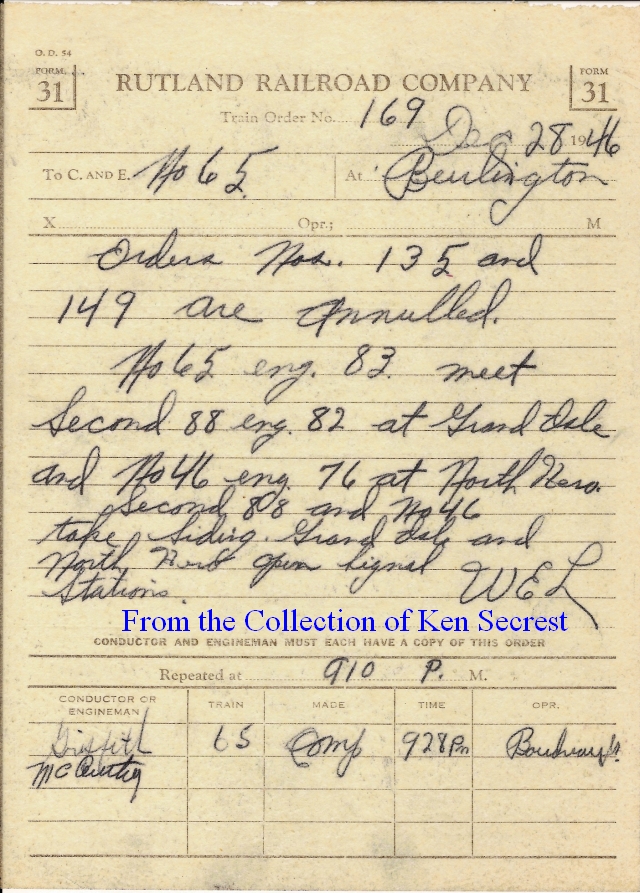 O. D. 54
FORM 31 RUTLAND RAILROAD COMPANY FORM 31
Train Order No. 169
Dec 28 1946
To C. AND E. No 65 At Burlington
X Opr.; M
Orders Nos. 135 and
149 are annulled.
No 65 eng. 83 meet
Second 88 eng. 82 at Grand Isle
and No 46 eng 76 at North Hero.
Second 88 and No 46
take siding. Grand Isle and
North Hero open signal
Stations. WEL
From the Collection of Ken Secrest
CONDUCTOR AND ENGINEMAN MUST EACH HAVE A COPY OF THIS ORDER
Repeated at 910 P. M.
CONDUCTOR OR ENGINEMAN TRAIN MADE TIME OPR.
Griffith 65 Comp 928Pm